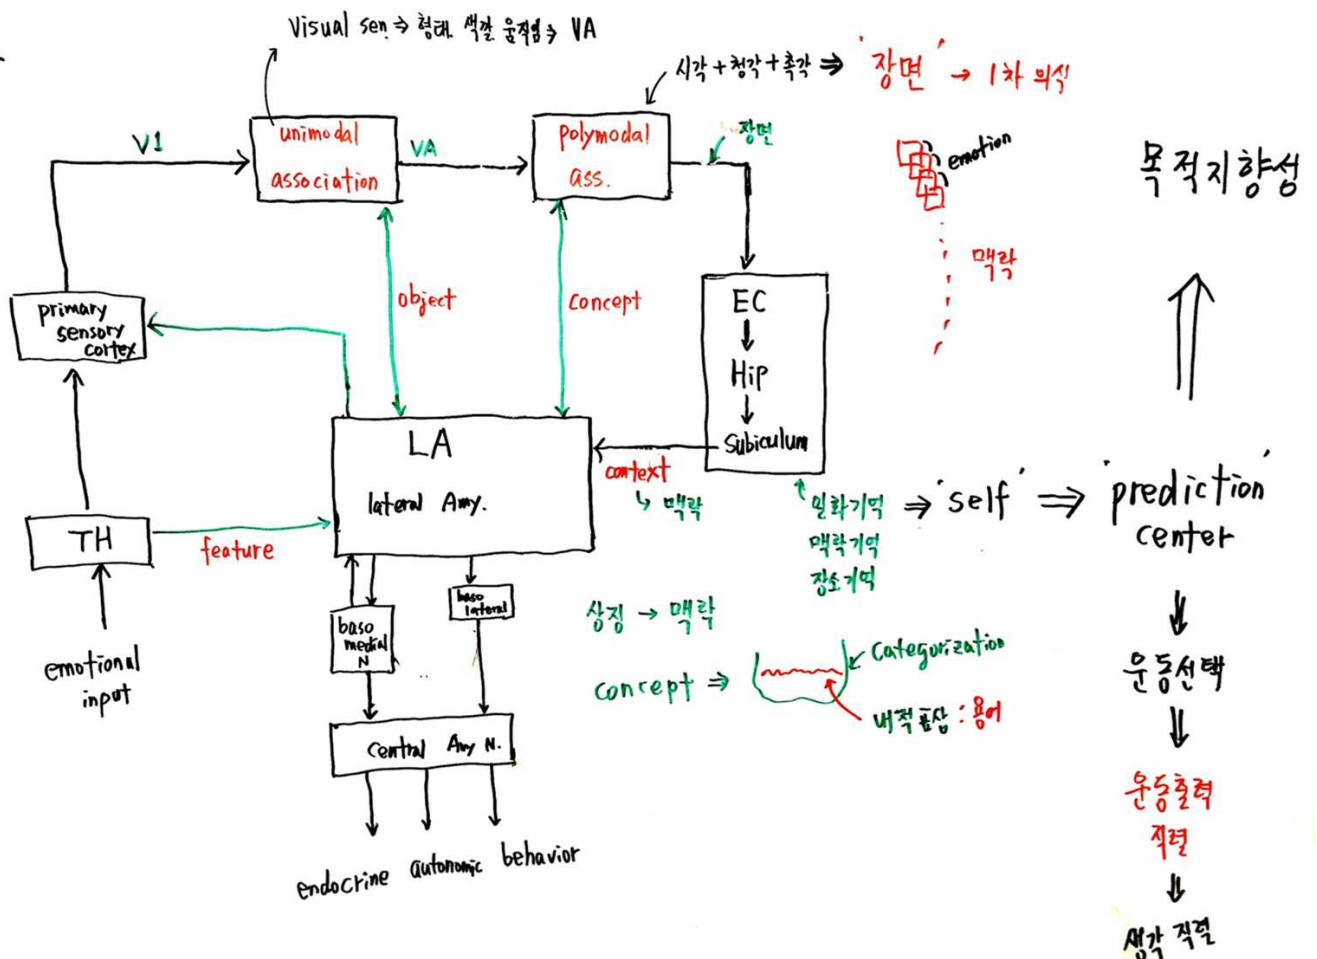 Visual sen ⇒ 형태 색깔 움직임 ⇒ VA
시각+청각+촉각 ⇒ '장면' → 1차 의식
V1
unimodal
association
VA
polymodal
ass.
장면
emotion
목적지향성
맥락
primary
sensory
cortex
object
concept
EC
Hip
Subiculum
LA
lateral Amy.
context
↳ 맥락
TH
feature
emotional
input
일화기억 ⇒ 'self' ⇒ 'prediction'
center
맥락기억
장소기억
baso
medial
N
baso
lateral
상징 → 맥락
concept ⇒
categorization
내적표상 : 용어
central Amy N.
endocrine autonomic behavior
운동선택
운동출력
직렬
생각 직렬